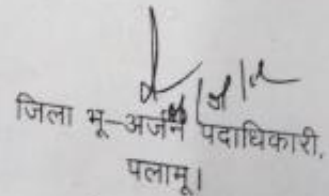 जिला भू-अर्जन पदाधिकारी,
पलामू।